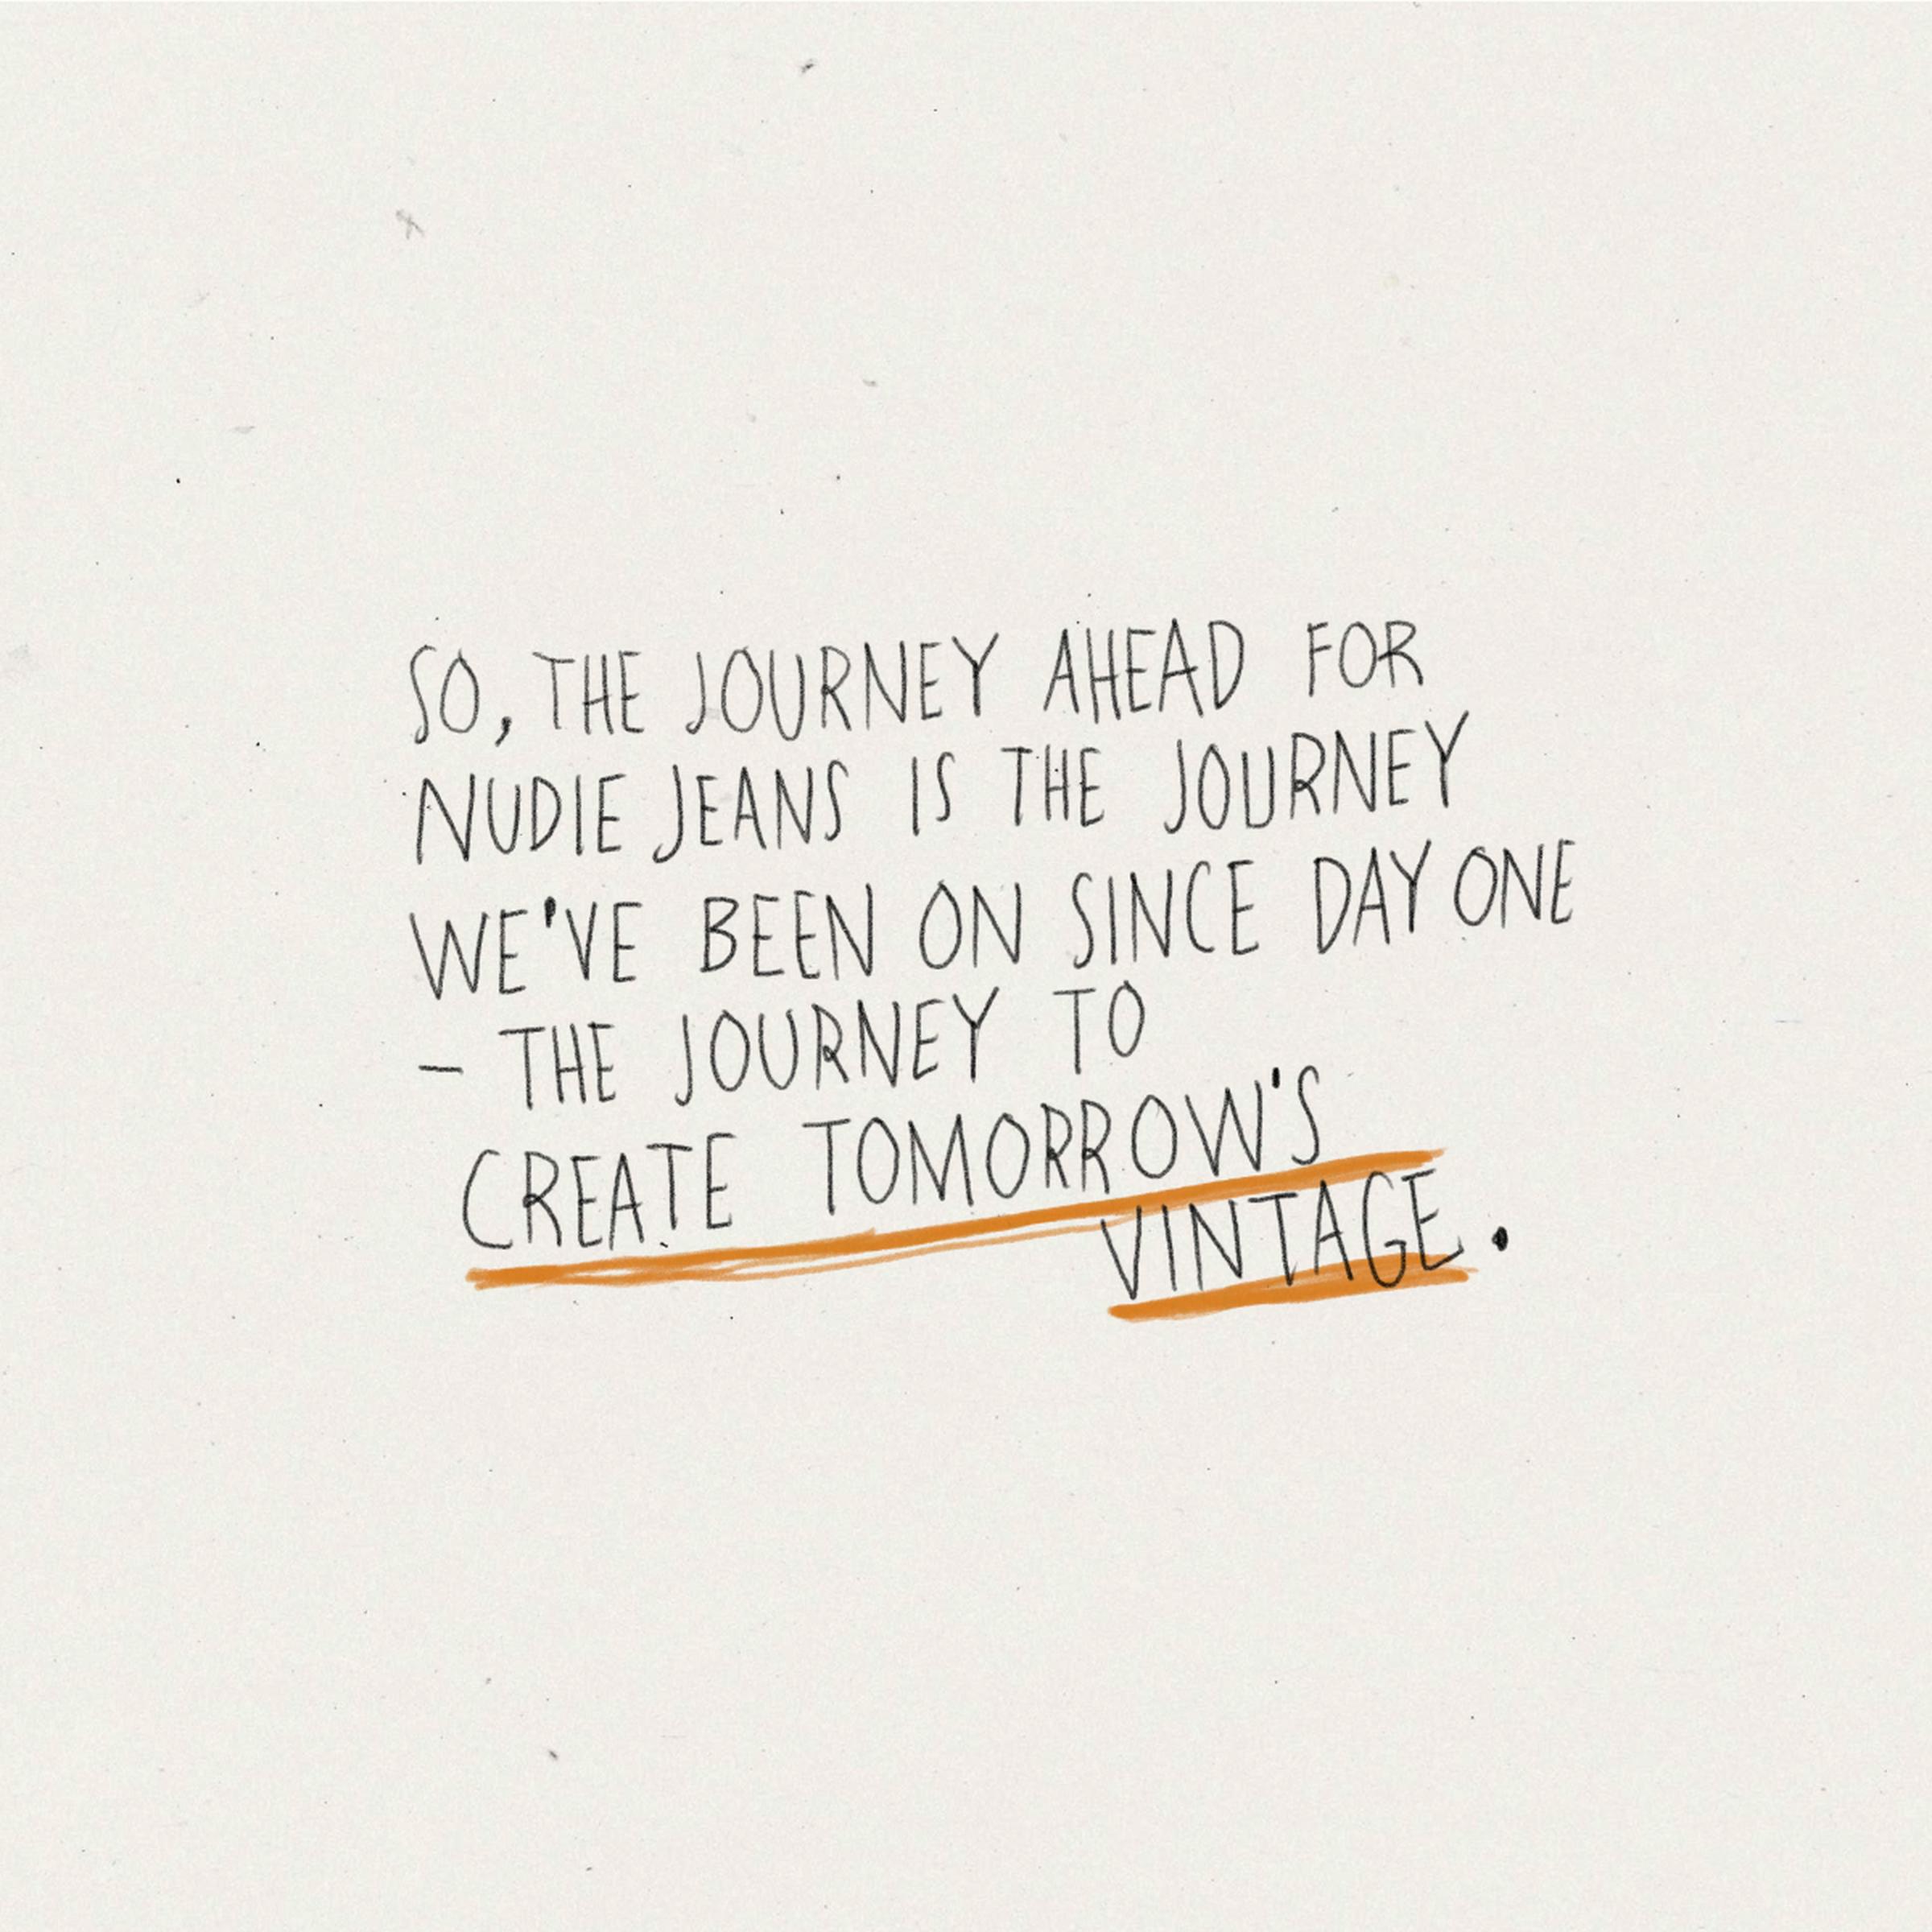 SO, THE JOURNEY AHEAD FOR
NUDIE JEANS IS THE JOURNEY
WE'VE BEEN ON SINCE DAY ONE
– THE JOURNEY TO
CREATE TOMORROW'S
VINTAGE.